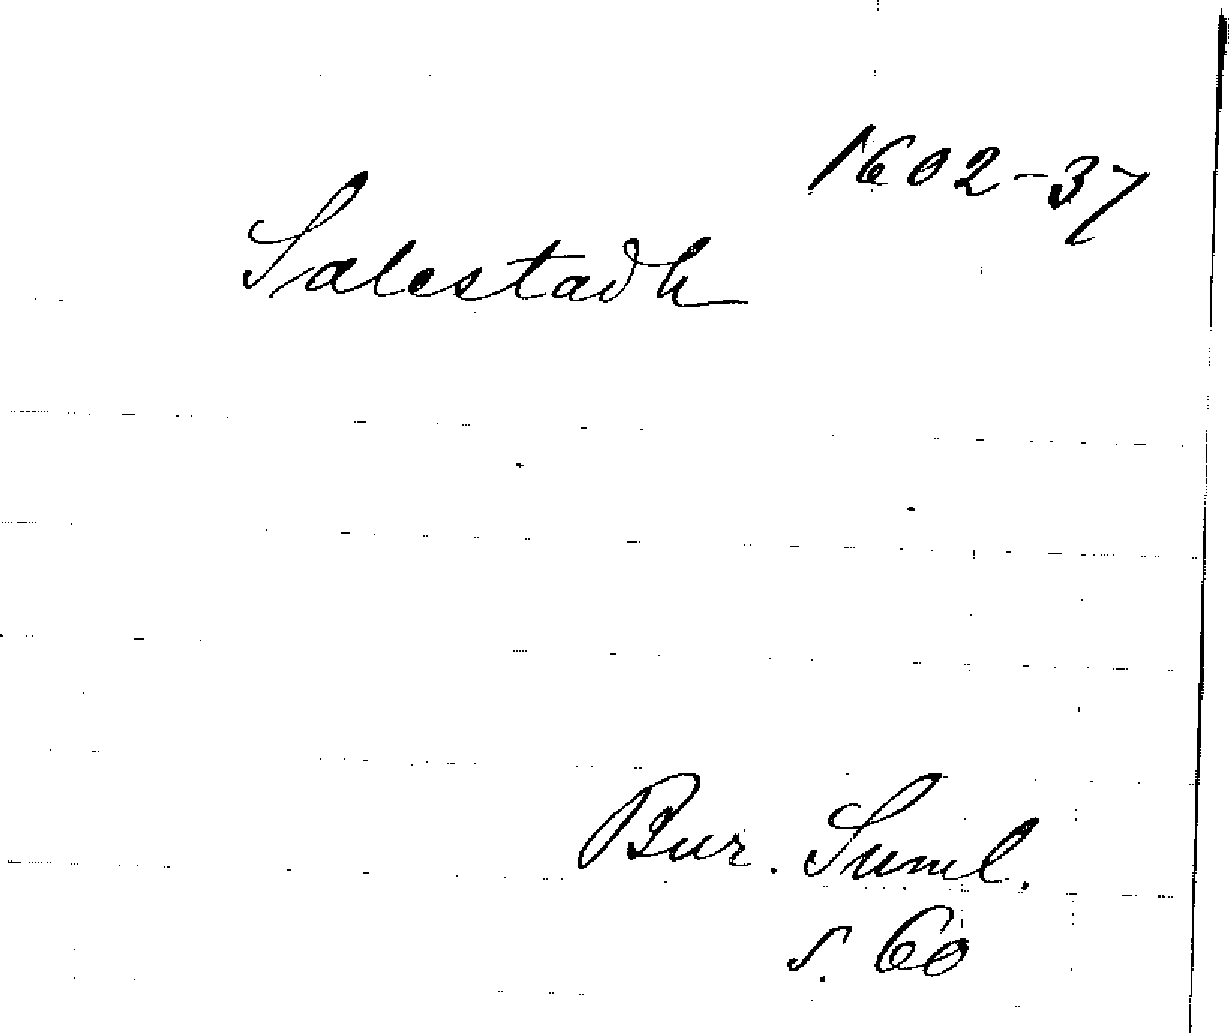 1602-37
Salestadh
Bur. Suml.
s. 60